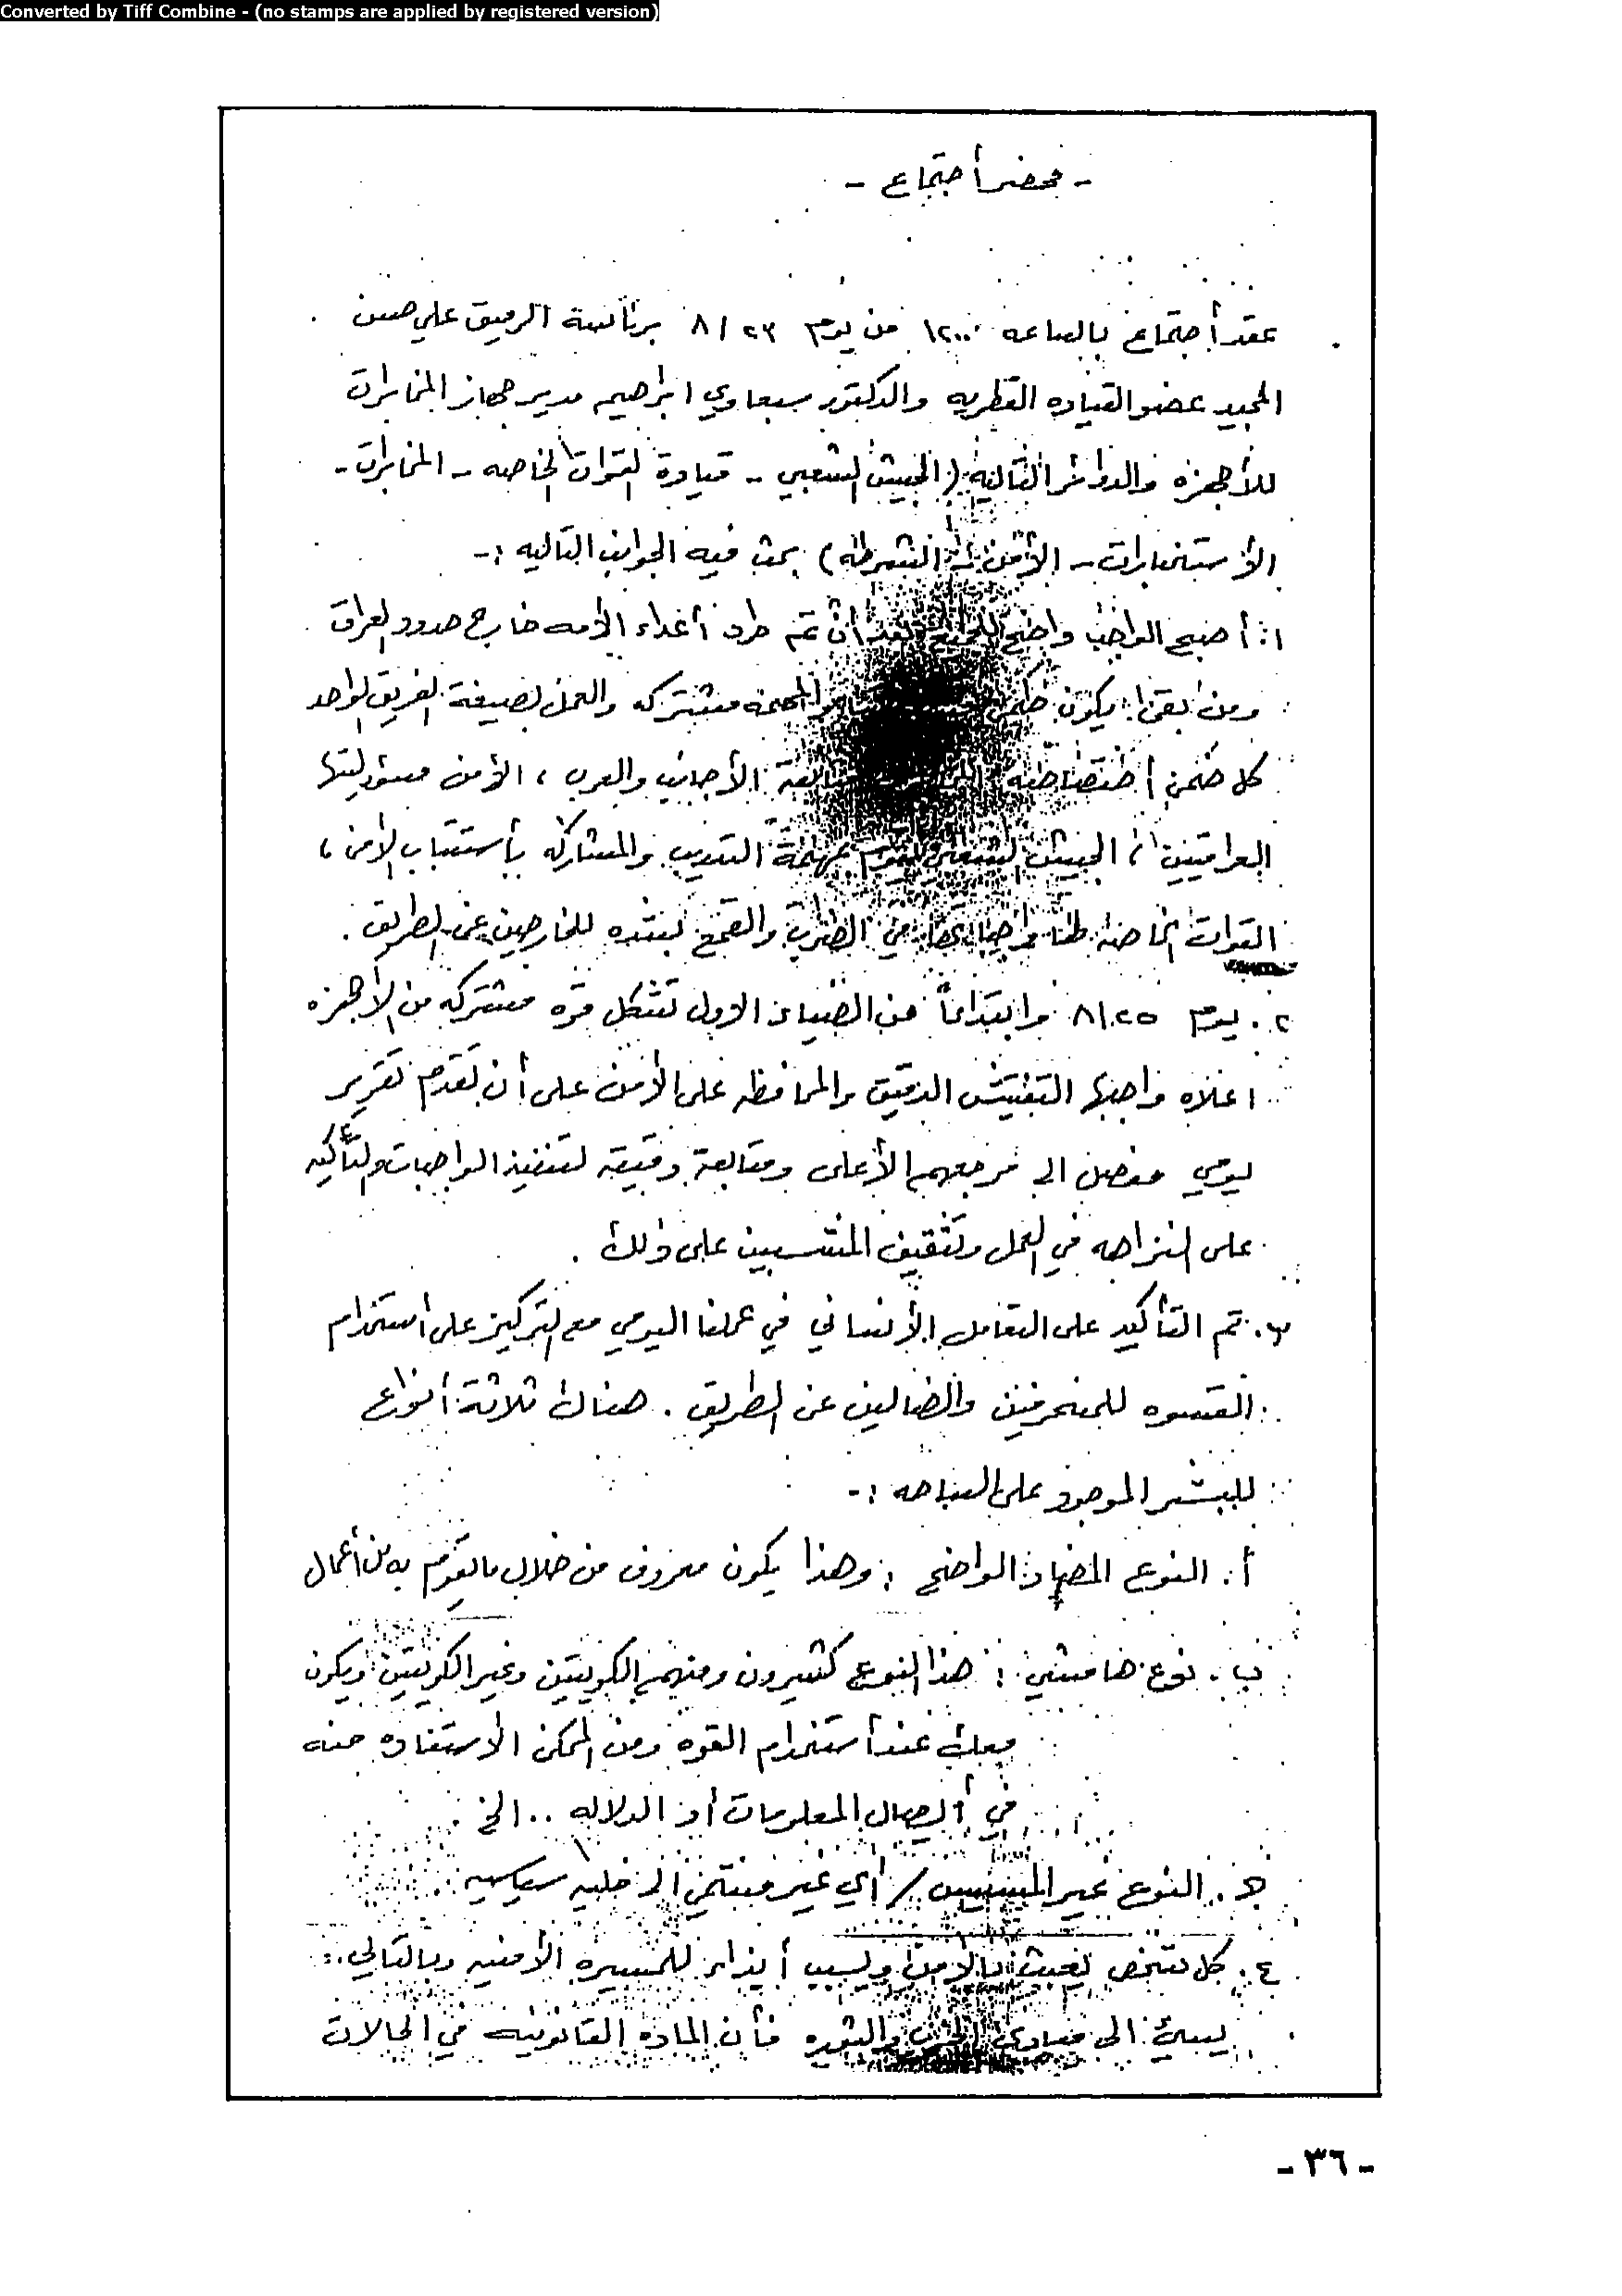 Converted by Tiff Combine - (no stamps are applied by registered version)
- محضر أجتماع -
عقد أجتماع بالساعه ١٢٠٠ من يوم ٢٣ / ٨ برئاسة الرفيق علي حسن
المجيد عضو القياده القطريه والدكتور سبعاوي ابراهيم مدير جهاز المخابرات
للأجهزه والدوائر التاليه ( الجيش الشعبي - قيادة القوات الخاصه - المخابرات -
الأستخبارات - الأمن - الشرطه ) بحث فيه الجوانب التاليه :-
١. أصبح الواجب واضح للجميع بعد أن تم طرد أعداء الأمه خارج حدود العراق
ومن بقى يكون ضمن والمهمه مشتركه والعمل بصيغة الفريق الواحد
كل ضمن أختصاصه متابعة الأجانب والعرب ، الأمن مسؤوليتها
العراقيين ، الجيش الشعبي يقوم بمهمة التدريب والمشاركه بأستتباب الأمن ،
القوات الخاصه لها واجبات خاصه الضرب والقمع بشده للخارجين عن الطريق .
٢. يوم ٢٥ / ٨ وابتداءاً من الضياء الاول تشكل قوه مشتركه من الأجهزه
اعلاه واجبها التفتيش الدقيق والمحافظه على الأمن على أن يقدم تقرير
يومي مفصل الى مرجعهم الأعلى ومتابعة دقيقه لتنفيذ الواجبات والتأكيد
على النزاهه في العمل وتثقيف المنتسبين على ذلك .
٣. تم التأكيد على التعامل الأنساني في عملنا اليومي مع التركيز على أستخدام
القسوه للمنحرفين والضالين عن الطريق . هناك ثلاثة أنواع
للبشر الموجود على الساحه :-
أ. النوع المضاد الواضح : وهذا يكون معروف من خلال مايقوم به من أعمال
ب. نوع هامشي : هذا النوع كثيرون ومنهم الكويتين وغير الكويتين ويكون
معك عند أستخدام القوه ومن الممكن الأستفاده منه
في أيصال المعلومات أو الدلاله .. الخ
جـ. النوع غير المسيس / أي غير منتمي الى خليه سياسيه
٤. كل شخص يعبث بالأمن ويسبب أيذاء للمسيره الأمنيه وبالتالي
يسيئ الى مبادئ الحزب والثوره فأن الماده القانونيه في الحالات
- ٣٦ -